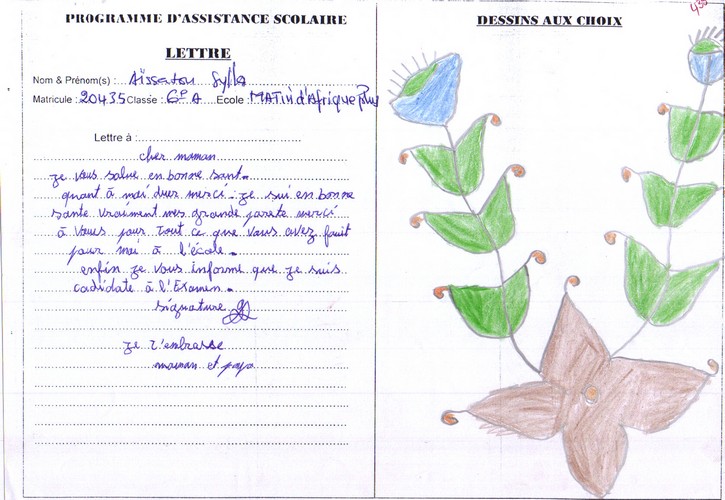 PROGRAMME D'ASSISTANCE SCOLAIRE
LETTRE
Nom & Prénom(s) : Aïssatou Sylla
Matricule : 20435 Classe : 6e A Ecole : MATin d'Afrique Plus
Lettre à :
cher maman
je vous salue en bonne sant
quant à moi dieu merci. je sui en bonne
sante vraiment mes grande parete merci
à vous pour tout ce que vous avez fauit
pour moi à l'école.
enfin je vous informe que je suis
cadidate à l'Examen.
signature
je t'embrasse
maman et papa
DESSINS AUX CHOIX